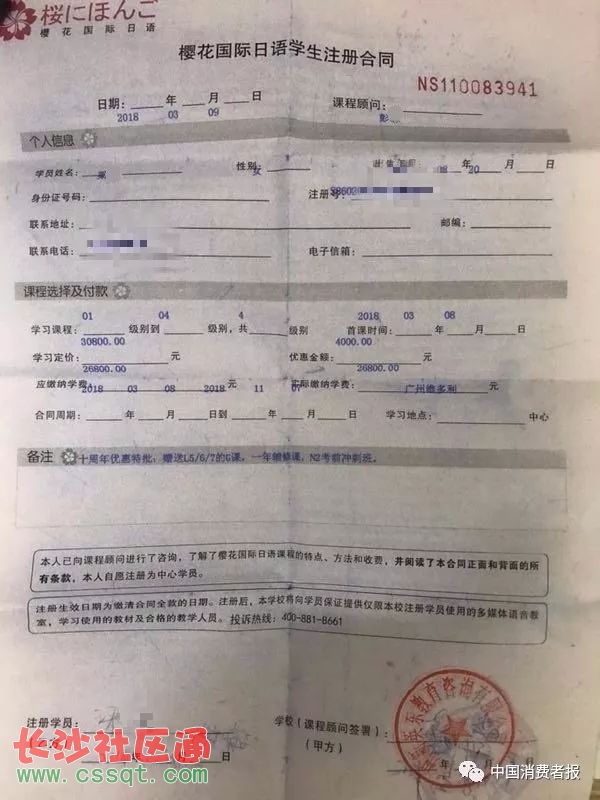 桜にほんご
樱花国际日语
樱花国际日语学生注册合同
NS110083941
日期: 年 月 日
2018 03 09
课程顾问:
彭
个人信息
学员姓名:
性别:
女
年 月 日
08 20
身份证号码:
注册号:
联系地址:
邮编:
联系电话:
电子信箱:
课程选择及付款
01 04 4
2018 03 08
学习课程: 级别到 级别, 共 级别
首课时间: 年 月 日
30800.00
4000.00
学习定价: 元
优惠金额: 元
26800.00
26800.00
应缴纳学费: 元
实际缴纳学费: 元
2018 03 08 2018 11 07
广州维多利
合同周期: 年 月 日到 年 月 日
学习地点: 中心
备注
十周年优惠特批, 赠送L5/6/7的G课, 一年辅修课, N2考前冲刺班。
本人已向课程顾问进行了咨询,了解了樱花国际日语课程的特点、方法和收费,并阅读了本合同正面和背面的所
有条款,本人自愿注册为中心学员。
注册生效日期为缴清合同全款的日期。注册后,本学校将向学员保证提供仅限本校注册学员使用的多媒体语音教
室,学习使用的教材及合格的教学人员。投诉热线:400-881-8661
注册学员:
学校(课程顾问签署):
(甲方)
长沙社区通
www.cssqt.com
中国消费者报